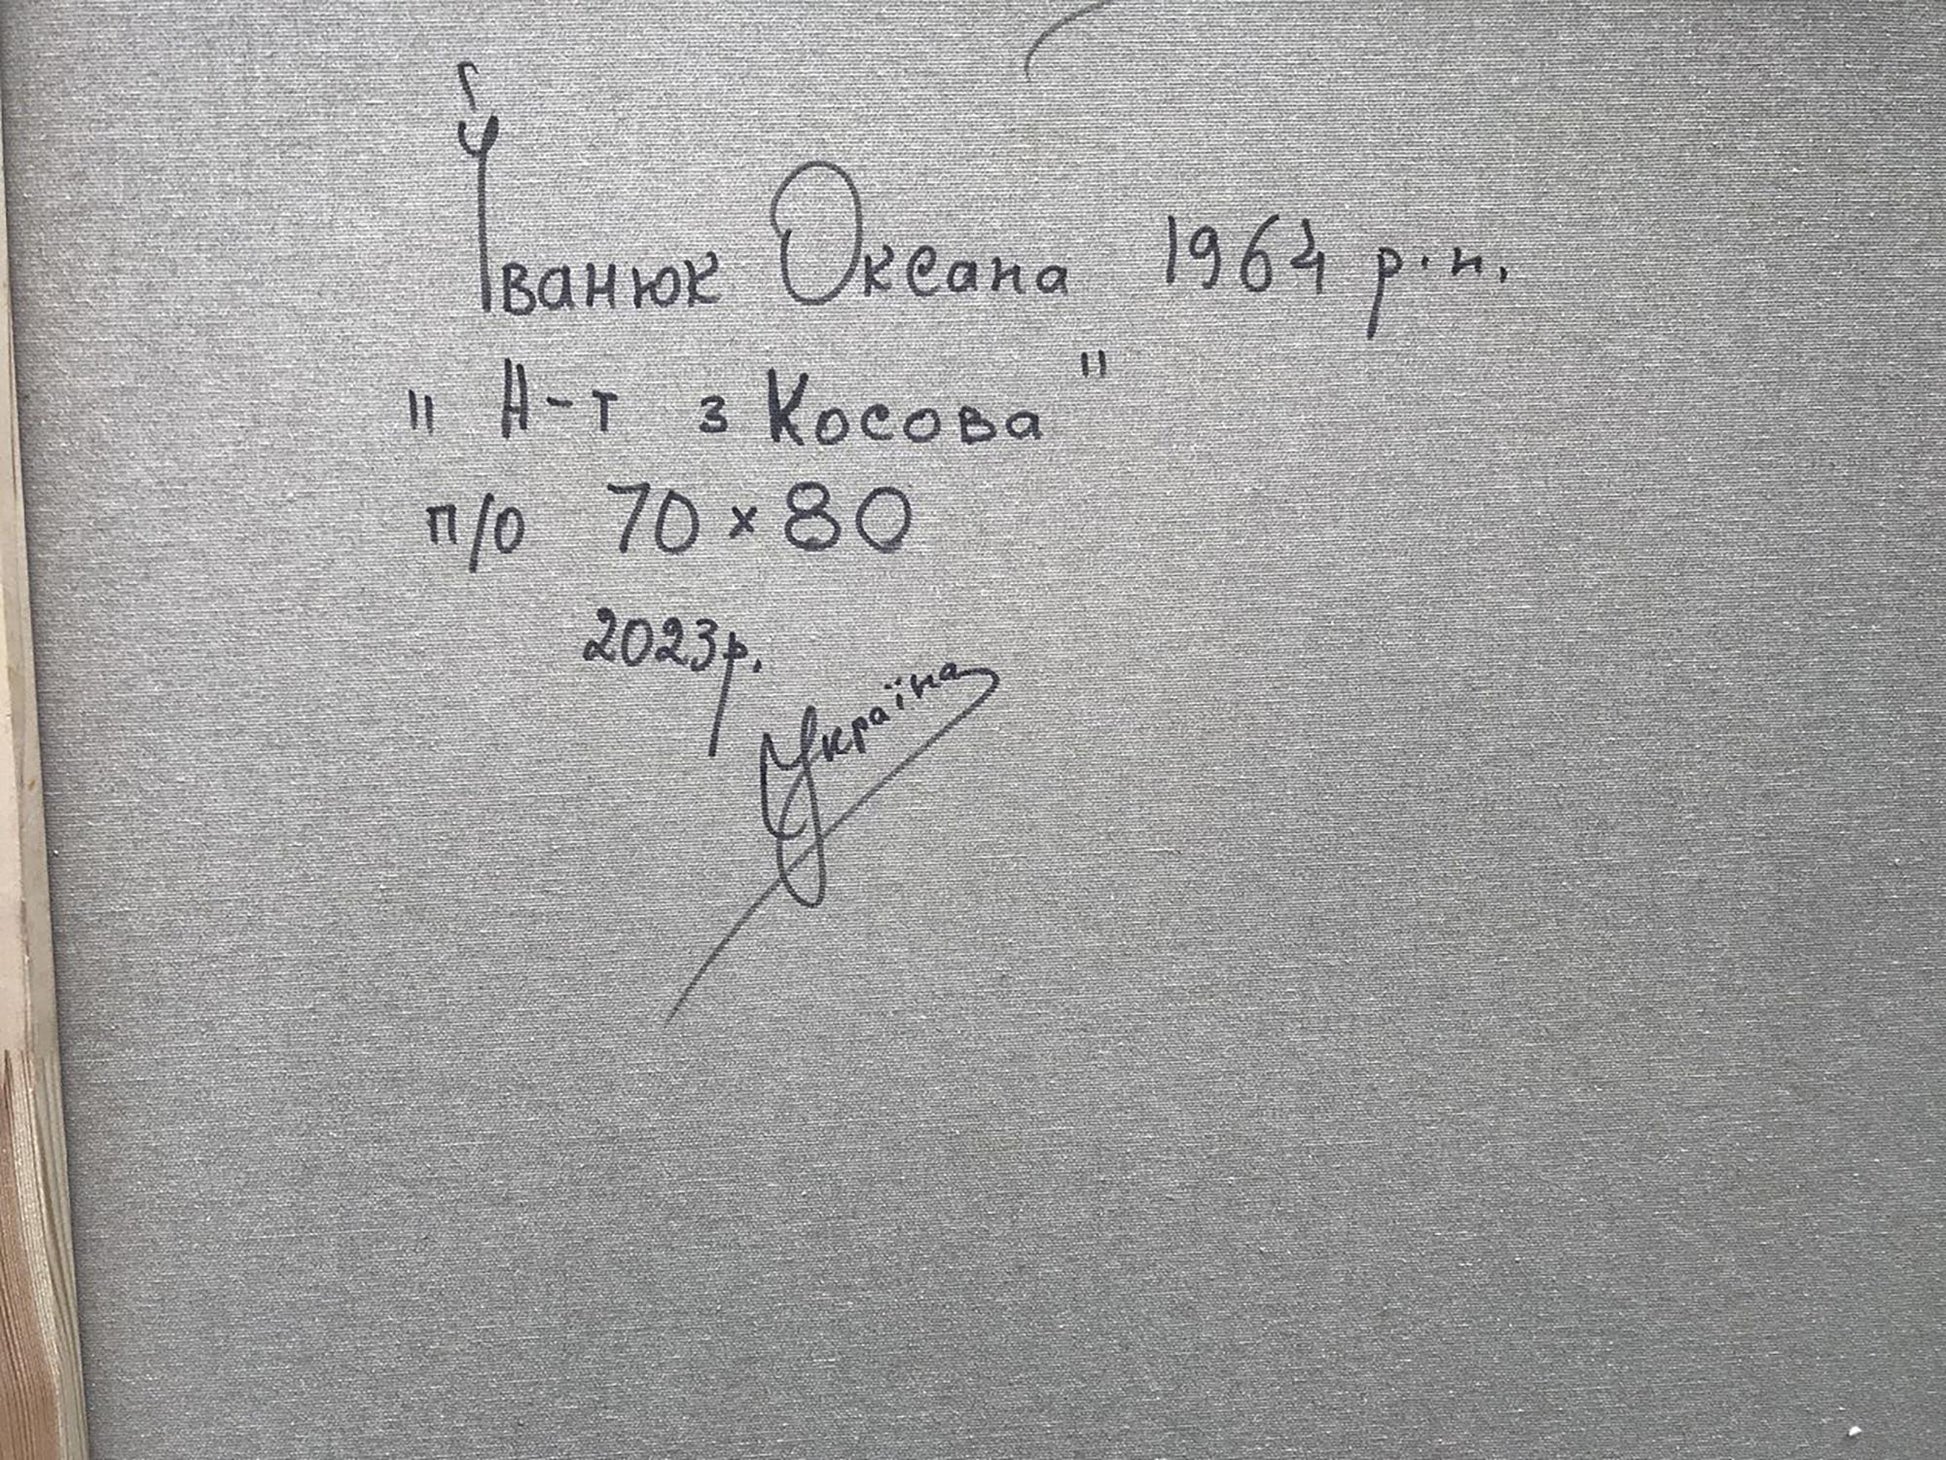 Іванюк Оксана 1964 р.н.
" Н-т з Косова "
п/о 70 x 80
2023р.
Україна